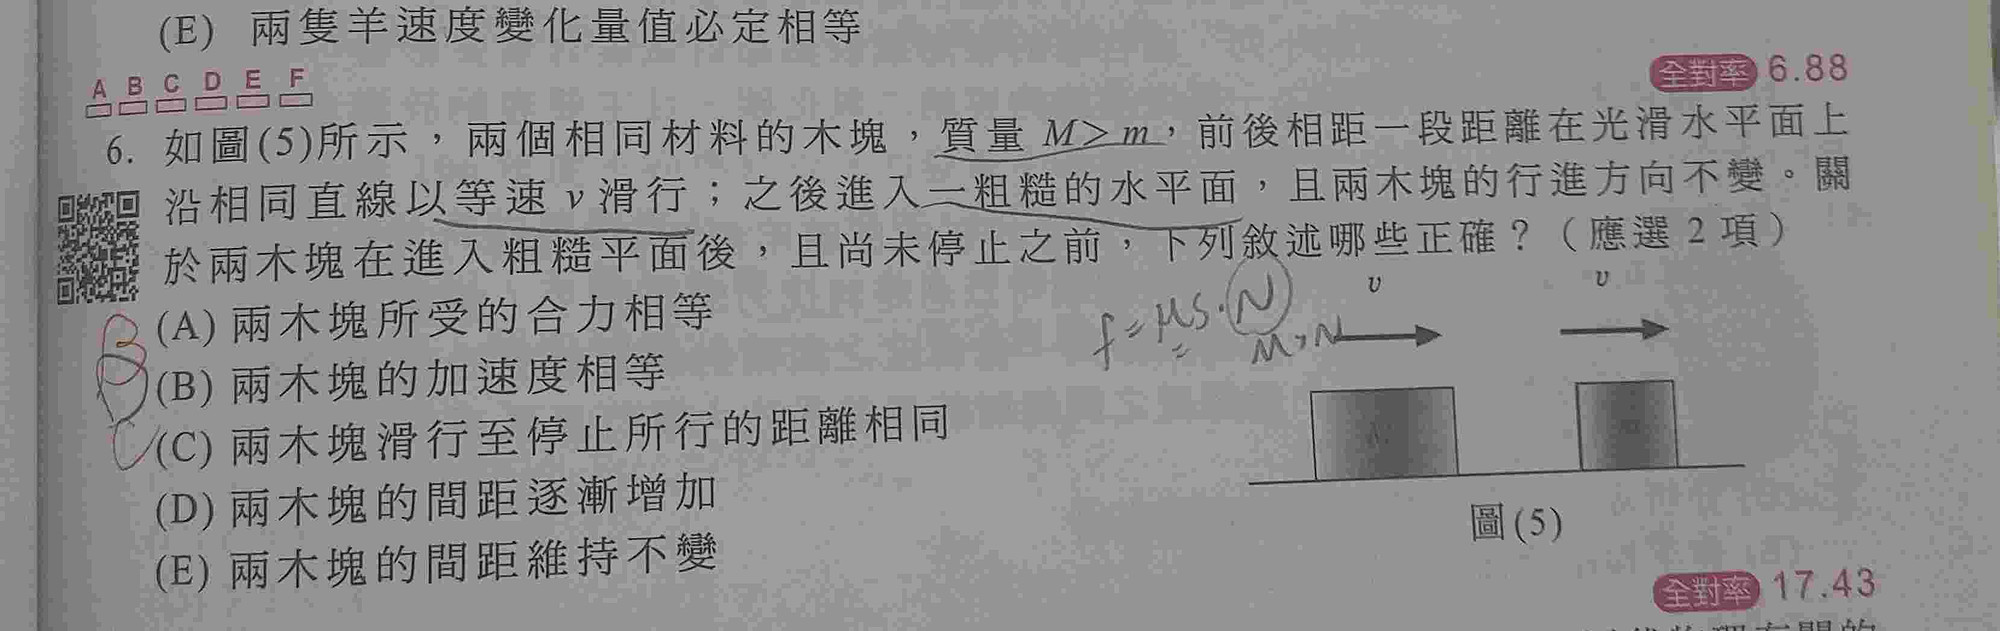 (E) 兩隻羊速度變化量值必定相等
全對率 6.88
A B C D E F
6. 如圖(5)所示，兩個相同材料的木塊，質量 M＞m，前後相距一段距離在光滑水平面上
沿相同直線以等速 v 滑行；之後進入一粗糙的水平面，且兩木塊的行進方向不變。關
於兩木塊在進入粗糙平面後，且尚未停止之前，下列敘述哪些正確？（應選 2 項）
v v
f = μs·N
M > N
(A) 兩木塊所受的合力相等
(B) 兩木塊的加速度相等
(C) 兩木塊滑行至停止所行的距離相同
(D) 兩木塊的間距逐漸增加
(E) 兩木塊的間距維持不變
B
C
圖(5)
全對率 17.43